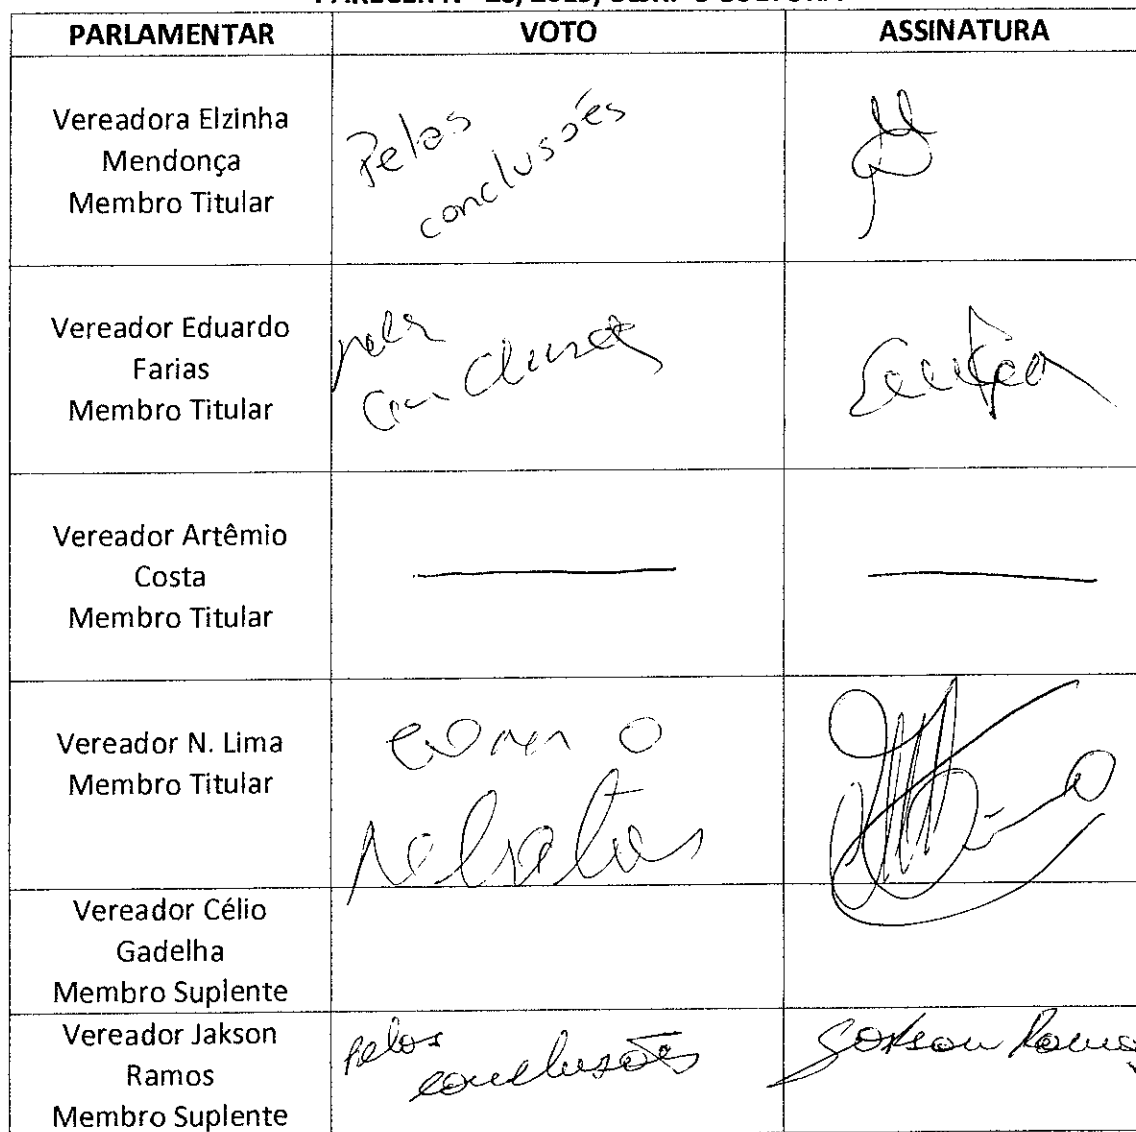 PARLAMENTAR VOTO ASSINATURA
Vereadora Elzinha
Mendonça
Membro Titular
Pelas
conclusões
Vereador Eduardo
Farias
Membro Titular
Vereador Artêmio
Costa
Membro Titular
Vereador N. Lima
Membro Titular
com o
Vereador Célio
Gadelha
Membro Suplente
Vereador Jakson
Ramos
Membro Suplente
pelas
conclusões
Jakson Ramos